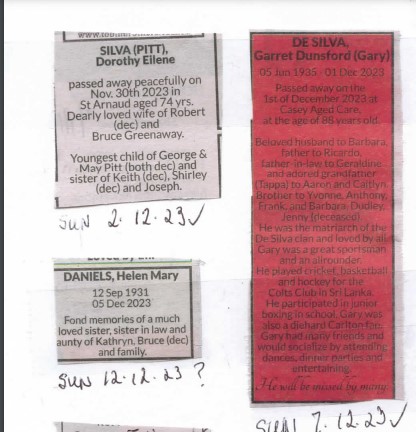 SILVA (PITT),
Dorothy Eilene
passed away peacefully on
Nov. 30th 2023 in
St Arnaud aged 74 yrs.
Dearly loved wife of Robert
(dec) and
Bruce Greenaway.
Youngest child of George &
May Pitt (both dec) and
sister of Keith (dec), Shirley
(dec) and Joseph.
SUN 2.12.23 ✓
DANIELS, Helen Mary
12 Sep 1931
05 Dec 2023
Fond memories of a much
loved sister, sister in law and
aunty of Kathryn, Bruce (dec)
and family.
SUN 12.12.23 ?
DE SILVA,
Garret Dunsford (Gary)
05 Jun 1935 - 01 Dec 2023
Passed away on the
1st of December 2023 at
Casey Aged Care,
at the age of 88 years old.
Beloved husband to Barbara,
father to Ricardo,
father-in-law to Geraldine
and adored grandfather
(Tappa) to Aaron and Caitlyn.
Brother to Yvonne, Anthony,
Frank, and Barbara. Dudley,
Jenny (deceased).
He was the matriarch of the
De Silva clan and loved by all.
Gary was a great sportsman
and an allrounder.
He played cricket, basketball
and hockey for the
Colts Club in Sri Lanka.
He participated in junior
boxing in school. Gary was
also a diehard Carlton fan.
Gary had many friends and
would socialize by attending
dances, dinner parties and
entertaining.
He will be missed by many.
SUN 7.12.23 ✓